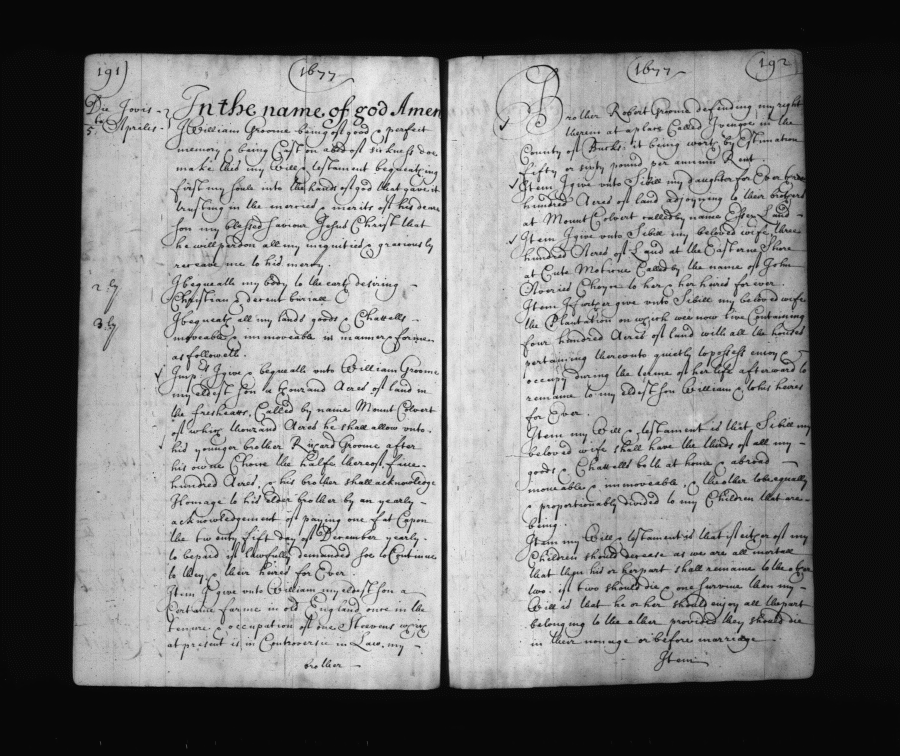 191)
1677
Die Jovis
5.to Aprilis
In the name of god Amen
I William Groome being of good & perfect
memory & being Cast on a bed of sickness doe
make this my Will & testament bequeathing
first my soule into the hands of god that gave it
trusting in the mercies & merits of his deare
son my blessed Saviour Jesus Christ that
he will pardon all my iniquities & graciously
receave me to his mercy.
2 ly
I bequeath my body to the earth desiring
Christian & decent buriall
3 ly
I bequeath all my lands goods & Chattells
moveable & immoveable in manner & forme
as followeth.
Imp.s I give & bequeath unto William Groome
my eldest son a thouzand Acres of land in
the freshears, Called by name Mount Colvert
of which thouzand Acres he shall allow unto
his younger brother Richard Groome after
his owne Choice the halfe thereof, five
hundred Acres, & his brother shall acknowledge
Homage to his elder brother by an yearly
acknowledgement of paying one fat Capon
the twenty fift day of December yearly
to be paid if lawfully demanded soe to Continue
to they & their heires for Ever.
Item I give unto William my eldest son a
Certaine farme in old England once in the
tenure & occupation of one Steevens which
at present is in Controversie in Law, my
brother
1677
192
Brother Robert Groome defending my right
therein at a place Called Ivingoe in the
County of Bucks: it being worth by Estimation
fifty or sixty pound per annum Rent
Item I give unto Sibill my daughter for Ever three
hundred Acres of land adjoyning to their brothers
at Mount Colvert called by name Essex Land
Item I give unto Sibill my beloved wife three
hundred Acres of Land at the Easterne Shore
at Cute Called by the name of John
Choyce to her & her heires for ever.
Item I further give unto Sibill my beloved wife
the Plantation on which we now live Containing
four hundred Acres of land with all the houses
pertaining thereunto quietly to possess enjoy &
occupy during the terme of her life afterward to
remaine to my eldest son William & to his heires
for Ever.
Item my Will & testament is that Sibill my
beloved wife shall have the thirds of all my
goods & Chattells both at home & abroad
moveable & immoveable & the other to be equally
& proportionably divided to my Children that are
being.
Item my Will & testament is that if either of my
Children should decease as we are all mortall
that then his or her part shall remaine to the other
two. if two should die & one survive then my
Will is that he or her should enjoy all the part
belonging to the other provided they should die
in their nonage or before marriage
Item